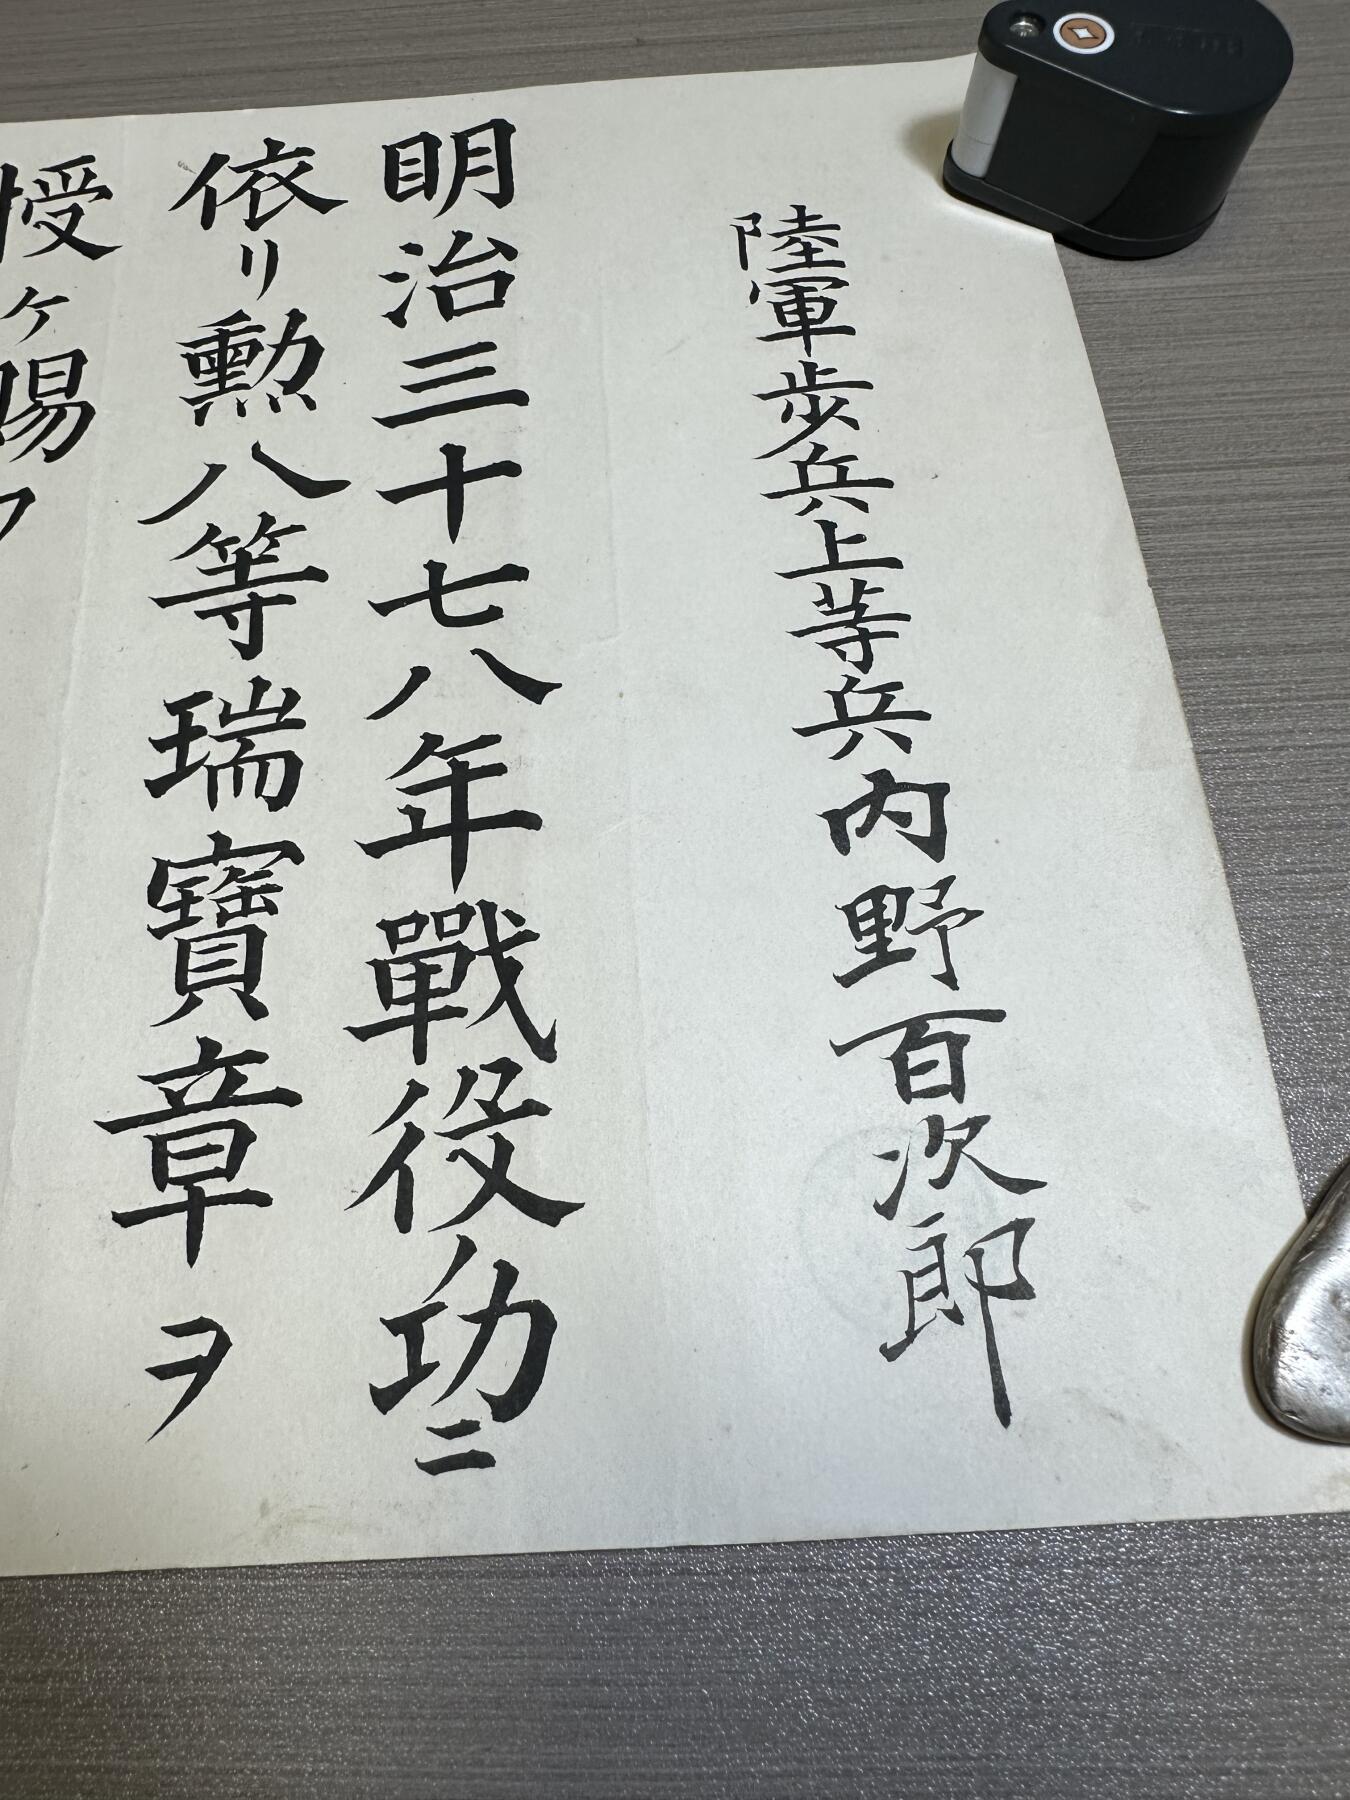 陸軍歩兵上等兵内野百次郎
明治三十七八年戰役功ニ
依リ勲八等瑞寶章ヲ
授ケ賜フ